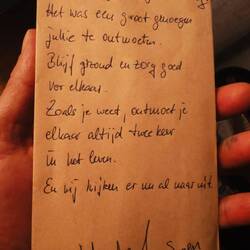 Het was een groot genoegen
jullie te ontmoeten.
Blijf gezond en zorg goed
voor elkaar.
Zoals je weet, ontmoet je
elkaar altijd twee keer
in het leven.
En wij kijken er nu al naar uit.